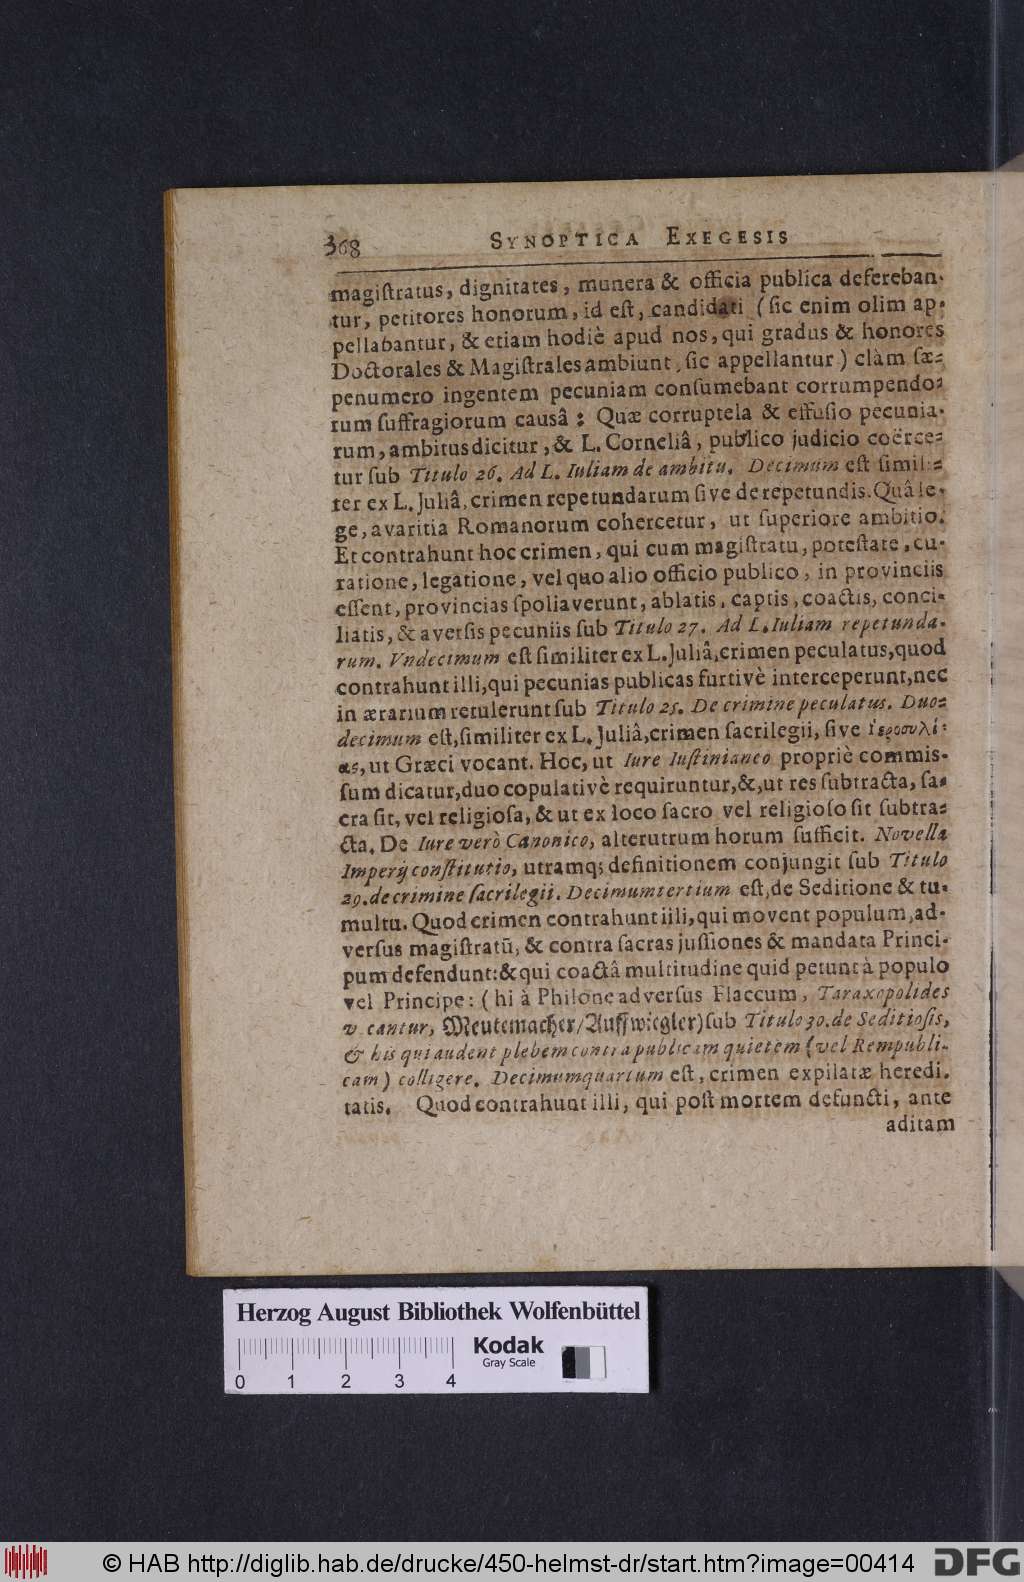 368 SYNOPTICA EXEGESIS
magiſtratus, dignitates, munera & officia publica defereban-
tur, petitores honorum, id eſt, candidati (ſic enim olim ap-
pellabantur, & etiam hodiè apud nos, qui gradus & honores
Doctorales & Magiſtrales ambiunt, ſic appellantur) clàm ſæ-
penumero ingentem pecuniam conſumebant corrumpendo-
rum ſuffragiorum causâ: Quæ corruptela & effuſio pecunia-
rum, ambitus dicitur, & L. Corneliâ, publico judicio coërce-
tur ſub Titulo 26. Ad L. Iuliam de ambitu. Decimum eſt ſimili-
ter ex L. Juliâ, crimen repetundarum ſive de repetundis. Quâ le-
ge, avaritia Romanorum cohercetur, ut ſuperiore ambitio.
Et contrahunt hoc crimen, qui cum magiſtratu, poteſtate, cu-
ratione, legatione, vel quo alio officio publico, in provinciis
eſſent, provincias ſpoliaverunt, ablatis, captis, coactis, conci-
liatis, & averſis pecuniis ſub Titulo 27. Ad L. Iuliam repetunda-
rum. Vndecimum eſt ſimiliter ex L. Juliâ, crimen peculatus, quod
contrahunt illi, qui pecunias publicas furtivè interceperunt, nec
in ærarium retulerunt ſub Titulo 25. De crimine peculatus. Duo-
decimum eſt, ſimiliter ex L. Juliâ, crimen ſacrilegii, ſive ἱεροσυλί-
ας, ut Græci vocant. Hoc, ut Iure Iuſtinianeo propriè commis-
ſum dicatur, duo copulativè requiruntur, &, ut res ſubtracta, ſa-
cra ſit, vel religioſa, & ut ex loco ſacro vel religioſo ſit ſubtra-
cta. De Iure verò Canonico, alterutrum horum ſufficit. Novella
Imperij conſtitutio, utramq; definitionem conjungit ſub Titulo
29. de crimine ſacrilegii. Decimumtertium eſt, de Seditione & tu-
multu. Quod crimen contrahunt illi, qui movent populum, ad-
verſus magiſtratū, & contra ſacras juſſiones & mandata Princi-
pum defendunt: & qui coactâ multitudine quid petunt à populo
vel Principe: (hi à Philone adverſus Flaccum, Taraxopolides
vocantur, Meutemacher/Auffwiegler) ſub Titulo 30. de Seditioſis,
& his qui audent plebem contra publicam quietem (vel Rempubli-
cam) colligere. Decimumquartum eſt, crimen expilatæ heredi-
tatis. Quod contrahunt illi, qui poſt mortem defuncti, ante
aditam
Herzog August Bibliothek Wolfenbüttel
Kodak
Gray Scale
0 1 2 3 4
© HAB http://diglib.hab.de/drucke/450-helmst-dr/start.htm?image=00414 DFG